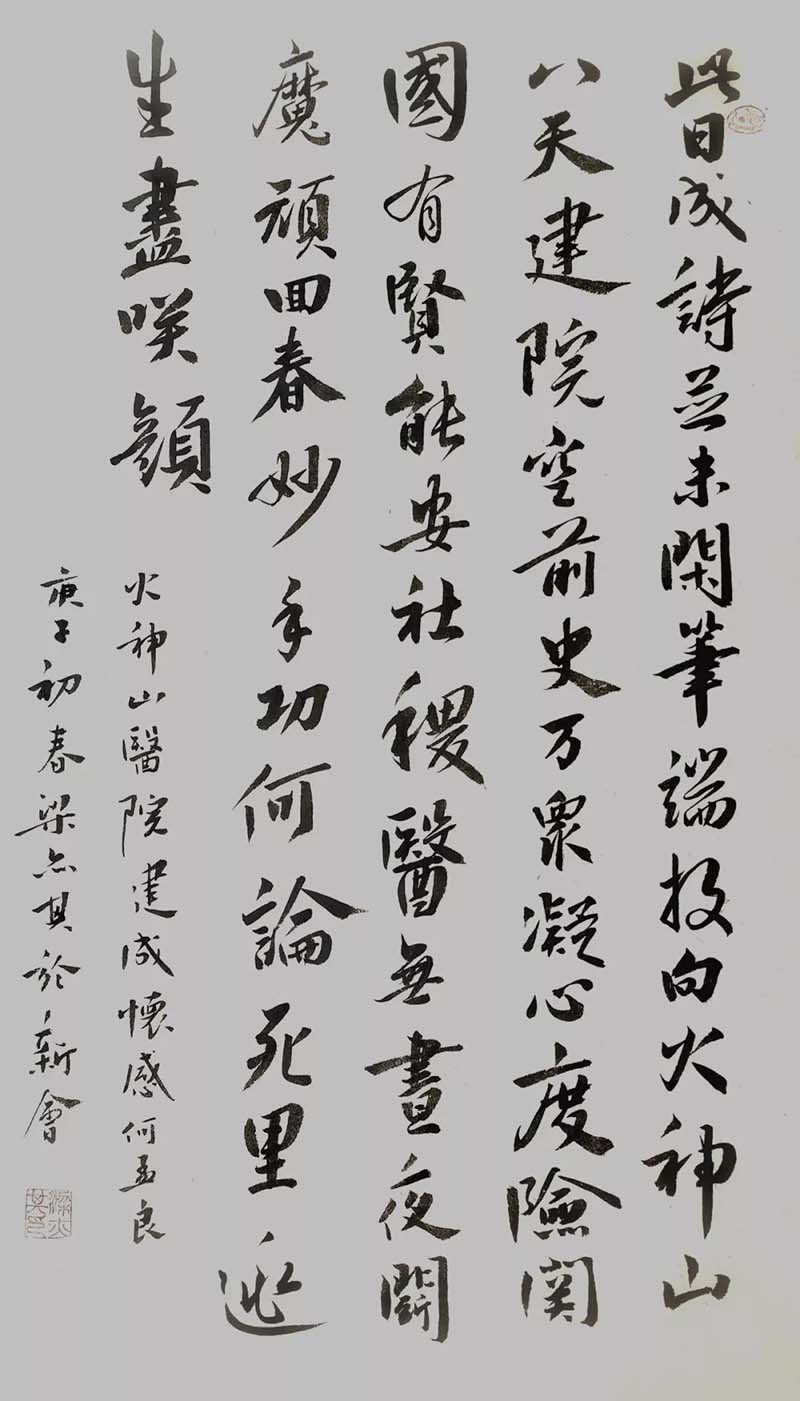 此日成詩並未閑筆端投向火神山
八天建院空前史万眾凝心度險関
國有賢能安社稷醫無晝夜鬪
魔頑回春妙手功何論死里逃
生盡咲顔
火神山醫院建成懷感何孟良
庚子初春梁亦其於新會
梁亦其印